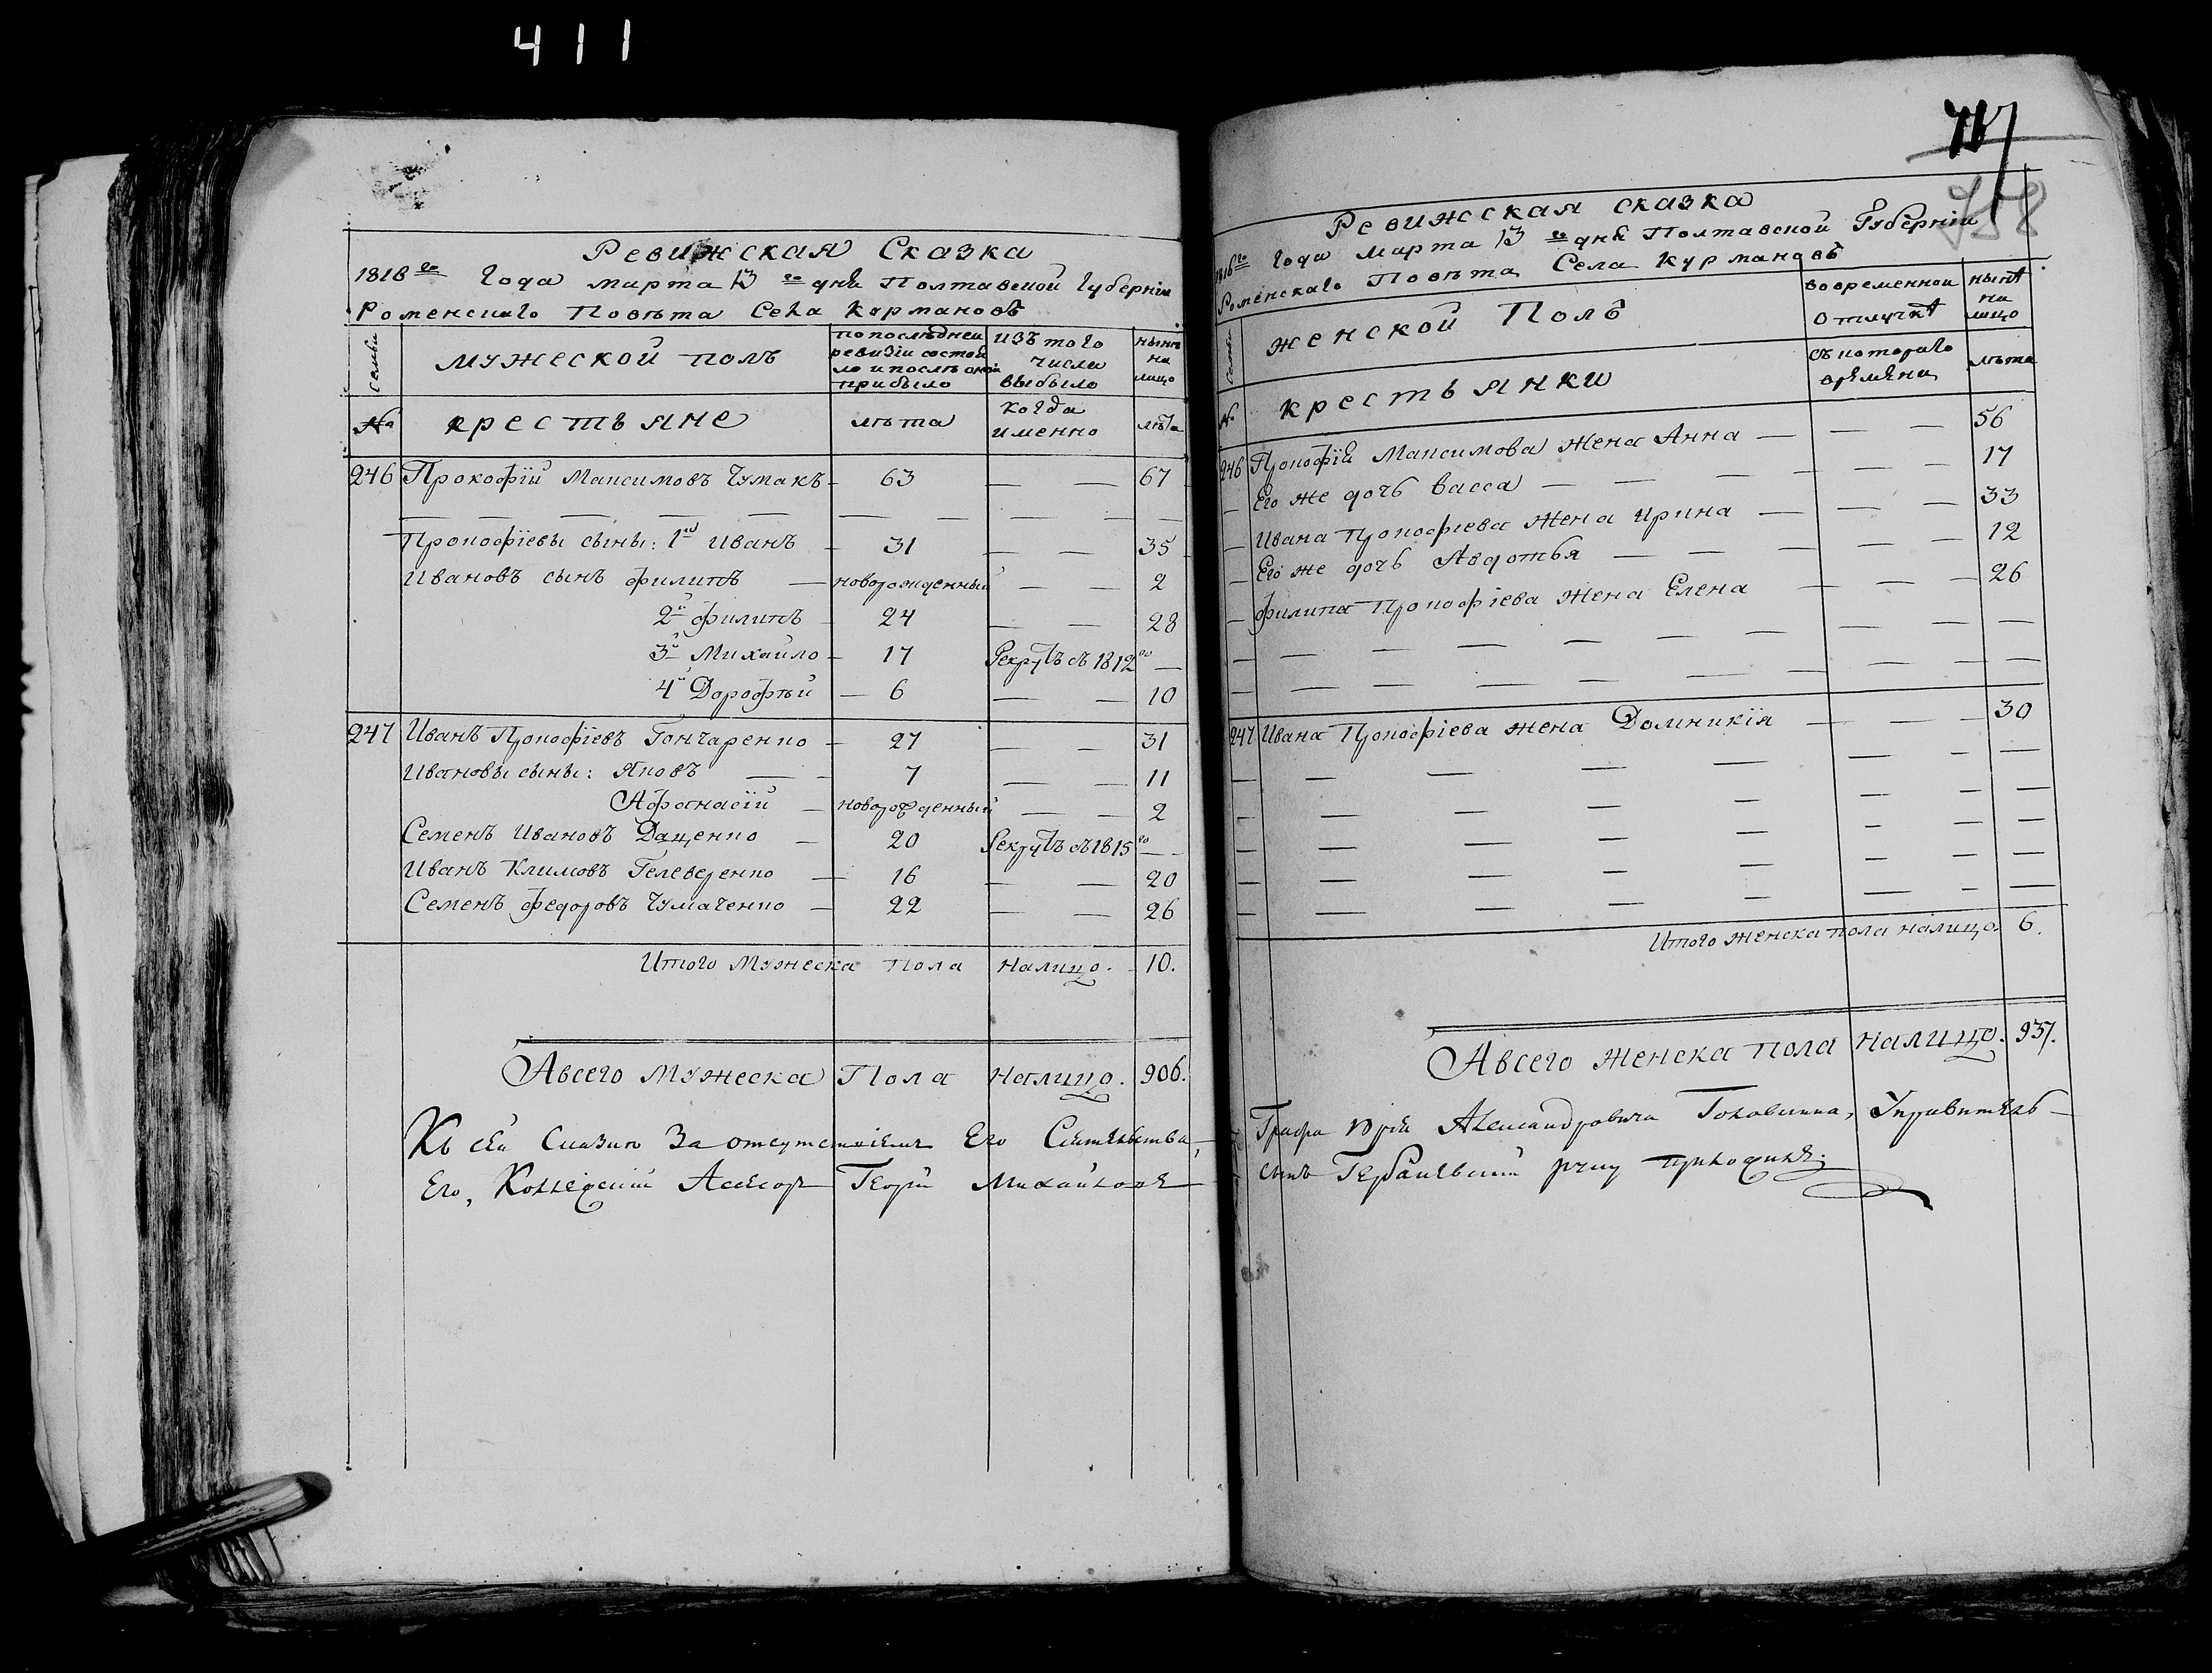 411
Ревижская Сказка
1816го Года марта 13го дня Полтавской Губерніи
Роменскаго Повѣта Села Курмановъ
Семьи
мужеской полъ
по последней ревизіи состояло и послѣ оной прибыло
изъ того числа выбыло
нынѣ на лицо
№
крестьяне
лѣта
когда именно
лѣта
246 Прокофій Максимовъ Чумакъ — 63 — — 67
Прокофіевы сыны: 1й Иванъ — 31 — — 35
Ивановъ сынъ Филипъ — новорожденный — — 2
2й Филипъ — 24 — — 28
3й Михайло — 17 Рекрутъ въ 1812го —
4й Дорофѣй — 6 — — 10
247 Иванъ Прокофіевъ Гончаренко — 27 — — 31
Ивановы сыны: Яковъ — — 7 — — 11
Афанасій — новорожденный — — 2
Семенъ Ивановъ Даценко — 20 Рекрутъ въ 1815го — —
Иванъ Климовъ Гелеверенко — 16 — — 20
Семенъ Федоровъ Чумаченко — 22 — — 26
Итого Мужеска пола налицо. 10.
Авсего Мужеска Пола налицо. 906.
Къ сей Сказки За отсутствіемъ Его Сіятельства,
Его, Коллежский Асесор Георгій Михайлов
758
Ревижская сказка
1816го Года Марта 13го дня Полтавской Губерніи
Роменскаго Повѣта Села Курмановъ
Семьи
женской Полъ
во временной отлучкѣ
нынѣ на лицо
№
крестьянки
съ котораго времѣни
лѣта
246 Прокофій Максимова жена Анна — — — 56
— Его же дочь Васса — — — — — 17
— Ивана Прокофіева жена Ирина — — — 33
— Его же дочь Авдотья — — — — — 12
— Филипа Прокофіева жена Елена — — — 26
247 Ивана Прокофіева жена Домникія — — — 30
Итого женска пола налицо 6.
Авсего женска пола налицо. 937.
Графа Юрія Александровича Головкина, Управитель
руку приложилъ